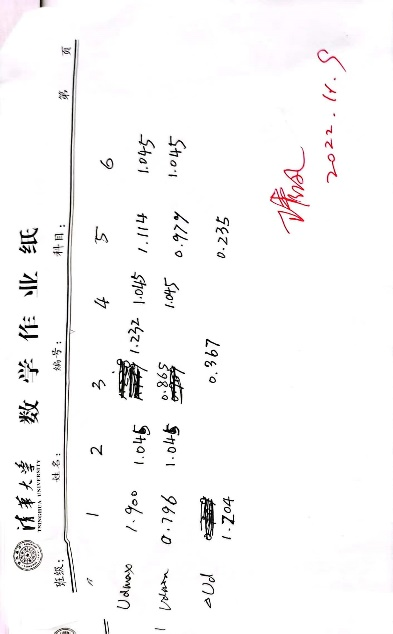 清華大学 数学作业纸
TSINGHUA UNIVERSITY
班级: 姓名: 编号: 科目: 第 页
1 2 3 4 5 6
Udmax 1.900 1.045 1.232 1.045 1.114 1.045
Udmin 0.796 1.045 0.865 1.045 0.979 1.045
△Ud 1.204 0.367 0.235
2022.11.9